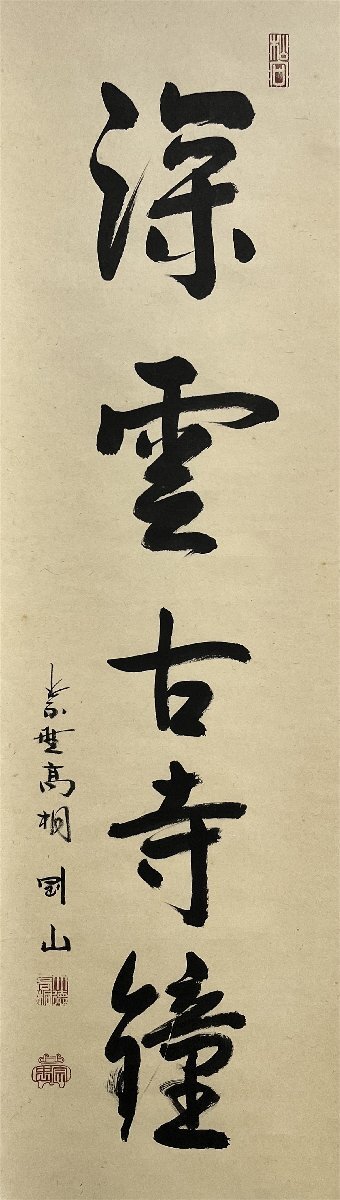 深雲古寺鐘
紫野高桐 剛山